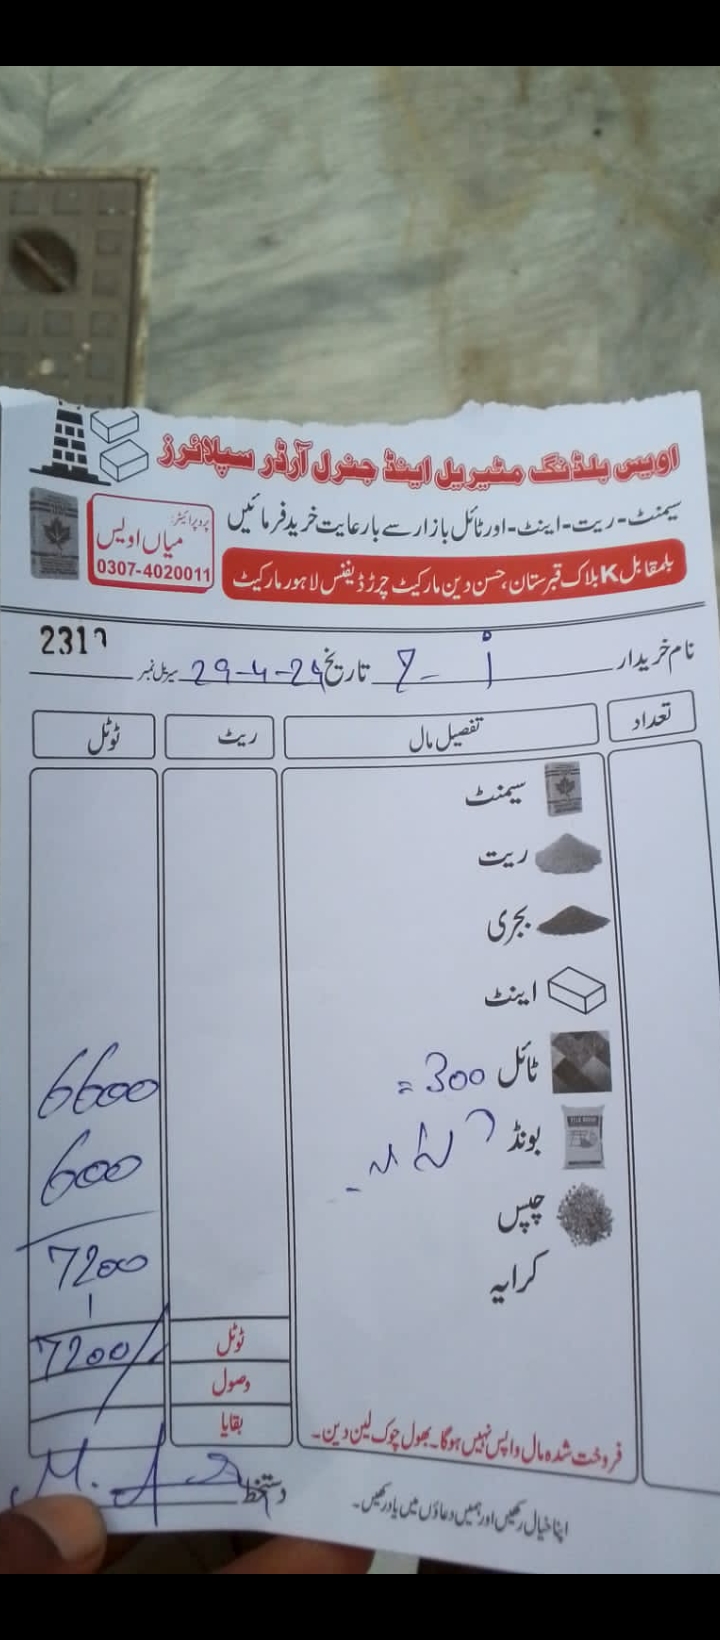 اویس بلڈنگ مٹیریل اینڈ جنرل آرڈر سپلائرز
سیمنٹ - ریت - اینٹ - اور ٹائل بازار سے بارعایت خرید فرمائیں
پروپرائیٹر:
میاں اویس
0307-4020011
بلمقابل K بلاک قبرستان، حسن دین مارکیٹ چرڑ ڈیفنس لاہور مارکیٹ
2319
نام خریدار
تاریخ 29-4-24 سیریل نمبر
تعداد تفصیل مال ریٹ ٹوٹل
سیمنٹ
ریت
بجری
اینٹ
ٹائل 300 = 6600
بونڈ 600
چپس
کرایہ 7200
ٹوٹل 7200/
وصول
بقایا
فروخت شدہ مال واپس نہیں ہوگا۔ بھول چوک لین دین۔
دستخط
اپنا خیال رکھیں اور ہمیں دعاؤں میں یاد رکھیں۔